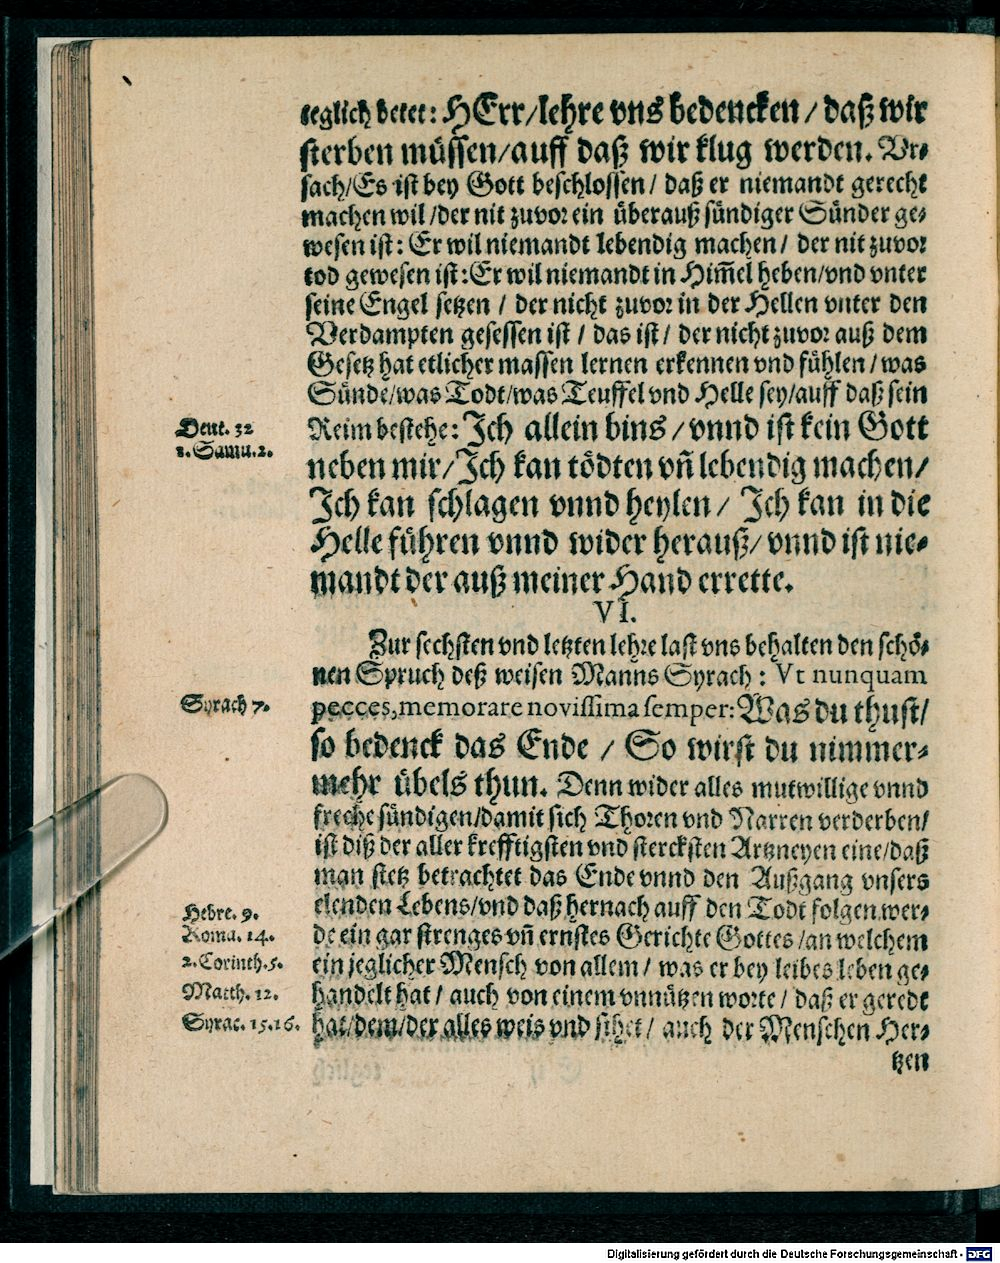 teglich betet: HErr/lehre vns bedencken / daß wir
sterben müssen/auff daß wir klug werden. Vr-
sach/Es ist bey Gott beschlossen / daß er niemandt gerecht
machen wil /der nit zuvor ein überauß sündiger Sünder ge-
wesen ist: Er wil niemandt lebendig machen / der nit zuvor
tod gewesen ist:Er wil niemandt in Him̃el heben/vnd vnter
seine Engel setzen / der nicht zuvor in der Hellen vnter den
Verdampten gesessen ist / das ist / der nicht zuvor auß dem
Gesetz hat etlicher massen lernen erkennen vnd fühlen / was
Sünde/was Todt/was Teuffel vnd Helle sey/auff daß sein
Deut. 32
1. Samu.2.
Reim bestehe: Ich allein bins / vnnd ist kein Gott
neben mir/Ich kan tödten vñ lebendig machen/
Ich kan schlagen vnnd heylen / Ich kan in die
Helle führen vnnd wider herauß/ vnnd ist nie-
mandt der auß meiner Hand errette.
VI.
Zur sechsten vnd letzten lehre last vns behalten den schö-
nen Spruch deß weisen Manns Syrach : Vt nunquam
Syrach 7.
pecces,memorare novissima semper: Was du thust/
so bedenck das Ende / So wirst du nimmer-
mehr übels thun. Denn wider alles mutwillige vnnd
freche sündigen/damit sich Thoren vnd Narren verderben/
ist diß der aller krefftigsten vnd stercksten Artzneyen eine/daß
man stetz betrachtet das Ende vnnd den Außgang vnsers
Hebre. 9.
elenden Lebens/vnd daß hernach auff den Todt folgen wer-
Roma. 14.
de ein gar strenges vñ ernstes Gerichte Gottes /an welchem
2. Corinth.5.
ein jeglicher Mensch von allem / was er bey leibes leben ge-
Matth. 12.
handelt hat / auch von einem vnnützen worte / daß er geredt
Syrac. 15.16.
hat/dem/der alles weis vnd sihet / auch der Menschen Her-
tzen
Digitalisierung gefördert durch die Deutsche Forschungsgemeinschaft - DFG